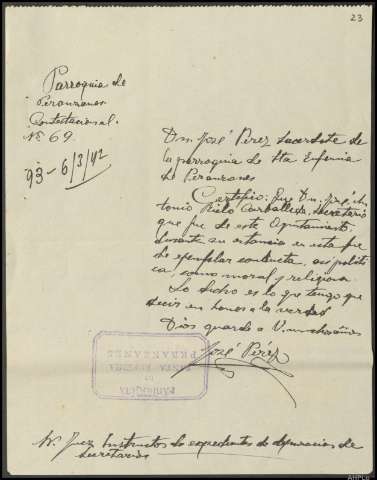 23
Parroquia de
Peranzanes
Contestacional.
Nº 69.
93-6/3/42
Dn. José Pérez Sacerdote de
la parroquia de Sta Eufemia
de Peranzanes
Certifico: Que Dn. José An
tonio Carballeda, secretario
que fue de este Ayuntamiento,
durante su estancia en esta fue
de ejemplar conducta, así políti
ca, como moral y religiosa.
Lo dicho es lo que tengo que
decir en honor a la verdad
Dios guarde a V. muchos años
José Pérez
PARROQUIA
DE
SANTA EUFEMIA
PERANZANES
Sr. Juez Instructor de expedientes de depuración de
Secretarios
AHPLe